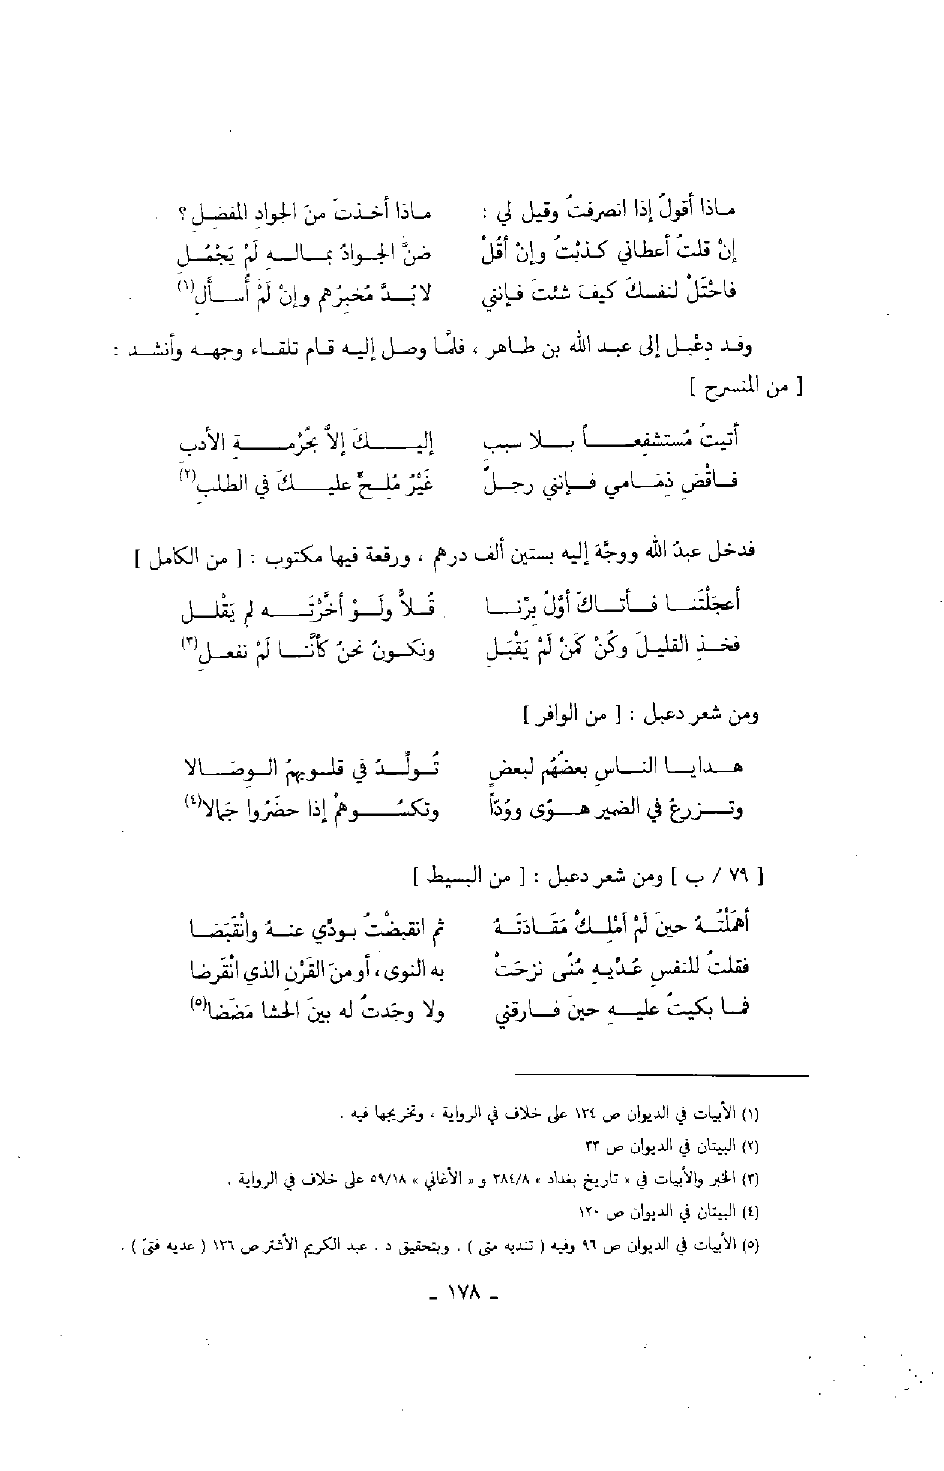 مـاذا أقولُ إذا انصرفتُ وقيل لي : مـاذا أخـذتَ منَ الجوادِ المفضـل ؟
إنْ قلتُ أعطاني كـذبْتُ وإن أقُلْ ضنَّ الجـوادُ بمـالـه لَمْ يَجْمُـل
فاخْتَلْ لنفسـكَ كيفَ شئتَ فـإنني لا بُـدَّ مُخبِرُهم وإنْ لَمْ أسـأل(١)
وفـد دِعْبـل إلى عبـد الله بن طـاهر ، فلمّا وصـل إليـه قـام تلقـاء وجهـه وأنشـد :
[ من المنسرح ]
أتيتُ مُـستشفِعـاً بـلا سبب إليـكَ إلاَّ بحُرْمـةِ الأدب
فـاقْضِ ذِمَـامي فـإنني رجـلٌ غَيْرُ مُلحٍّ عليـكَ في الطلب(٢)
فدخل عبدُ الله ووجَّهَ إليه بستين ألف درهم ، ورقعة فيها مكتوب : [ من الكامل ]
أعجلْتَنـا فـأتـاكَ أوّلُ برِّنـا قُـلاًّ ولَـوْ أخَّرْتَـه لم يَقْلـل
فخـذِ القليلَ وكُنْ كَمَنْ لَمْ يَقْبَل ونكـونُ نحنُ كأنَّنـا لَمْ نفعـل(٣)
ومن شعر دعبل : [ من الوافر ]
هـدايـا النـاسِ بعضُهُم لبعضٍ تُـولِّـدُ في قلـوبِهِمُ الـوِصَـالا
وتـزرعُ في الضمير هـوًى ووُدّاً وتكسُـوهمْ إذا حضَرُوا جَمالا(٤)
[ ٧٩ / ب ] ومن شعر دعبل : [ من البسيط ]
أهمَلْتُـهُ حينَ لَمْ أملِـكْ مَقَـادتَـهُ ثم انقبضْتُ بـودِّي عنـهُ وانْقَبَضَـا
فقلتُ للنفسِ عُدّيـهِ مُنًى نزحَتْ به النوى ، أو منَ القَرْنِ الذي انْقَرضَا
فمـا بكيتُ عليـهِ حينَ فـارقَني ولا وجَدتُ له بينَ الحشا مَضَضا(٥)
(١) الأبيات في الديوان ص ١٣٤ على خلاف في الرواية ، وتخريجها فيه .
(٢) البيتان في الديوان ص ٣٣
(٣) الخبر والأبيات في « تاريخ بغداد » ٣٨٤/٨ و « الأغاني » ٥٩/١٨ على خلاف في الرواية .
(٤) البيتان في الديوان ص ١٢٠
(٥) الأبيات في الديوان ص ٩٦ وفيه ( تنديه متى ) . وبتحقيق د . عبد الكريم الأشتر ص ١٣٦ ( عديه فتىً ) .
- ١٧٨ -